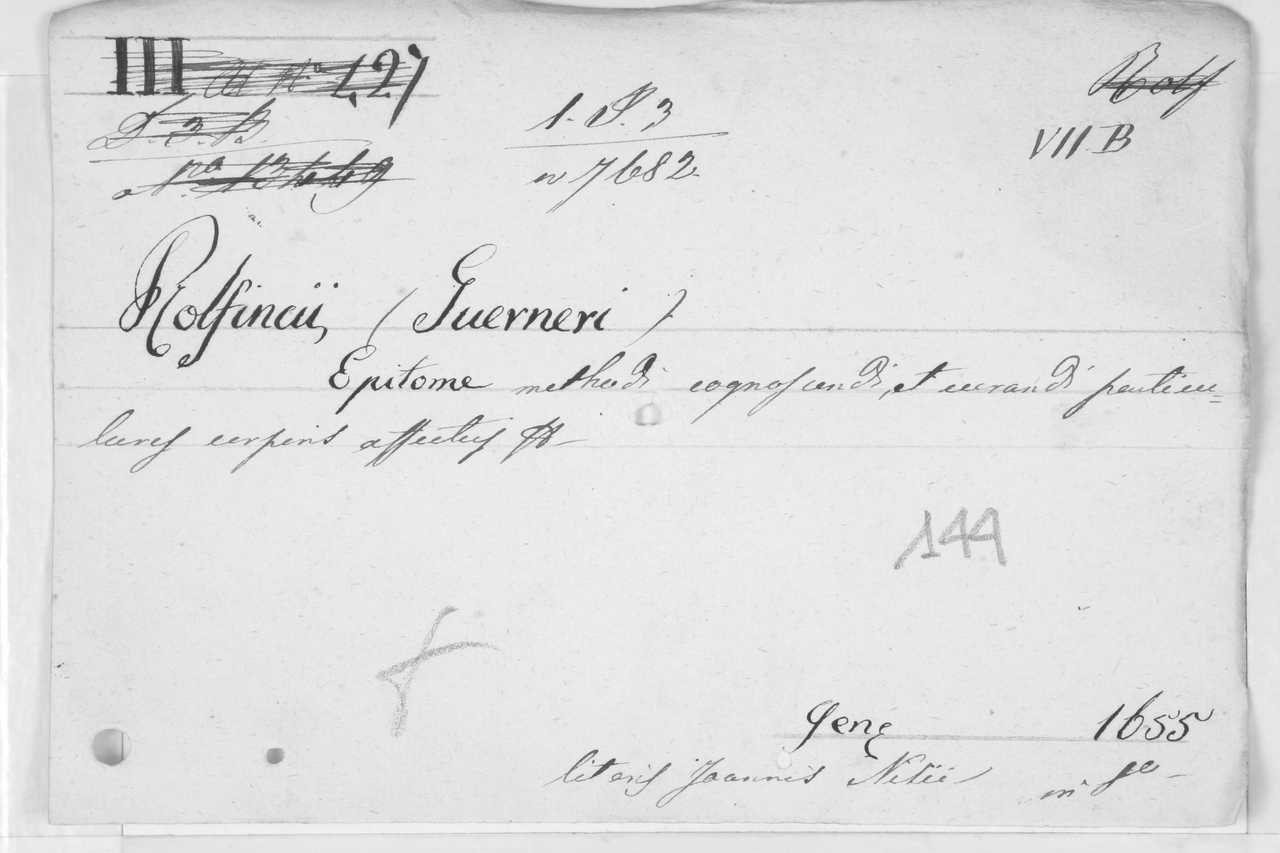 III 427
D. 3. B.
1. P. 3
n 7682
Rolf
VII B
Rolfincii, (Guerneri)
Epitome methodi cognoscendi, et curandi particu=
lares corporis affectus
144
Jenę 1655
literis Joannis Nisii in 8º